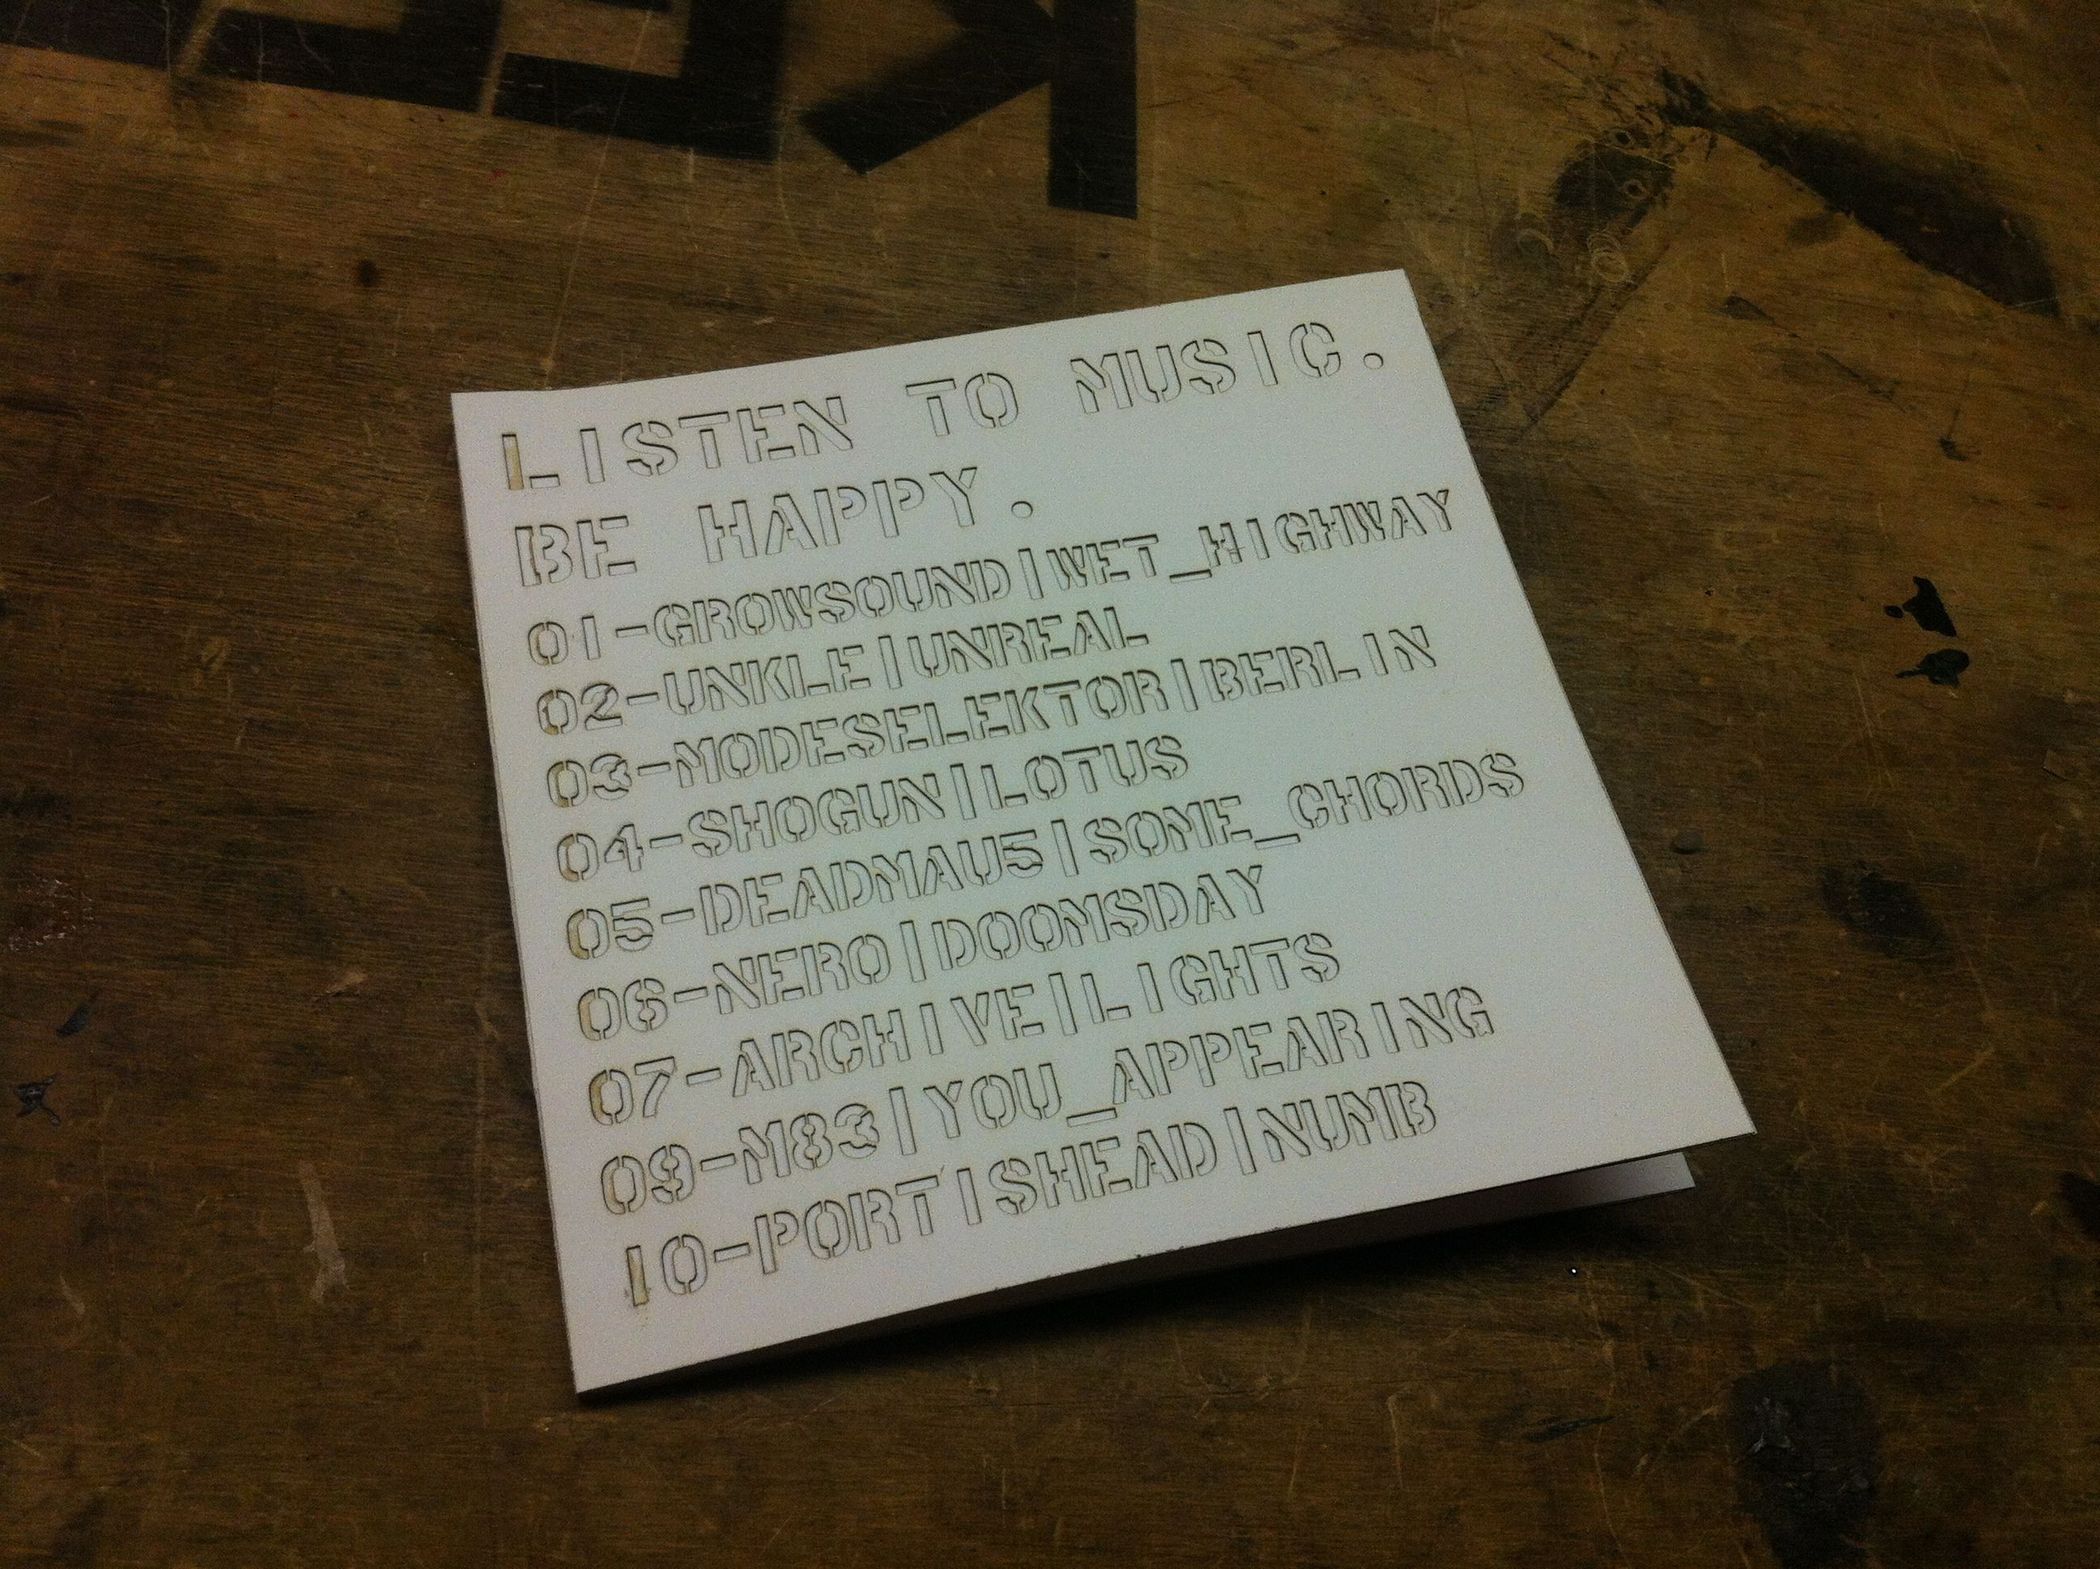 LISTEN TO MUSIC.
BE HAPPY.
01-GROWSOUND|WET_HIGHWAY
02-UNKLE|UNREAL
03-MODESELEKTOR|BERLIN
04-SHOGUN|LOTUS
05-DEADMAU5|SOME_CHORDS
06-NERO|DOOMSDAY
07-ARCHIVE|LIGHTS
09-M83|YOU_APPEARING
10-PORTISHEAD|NUMB